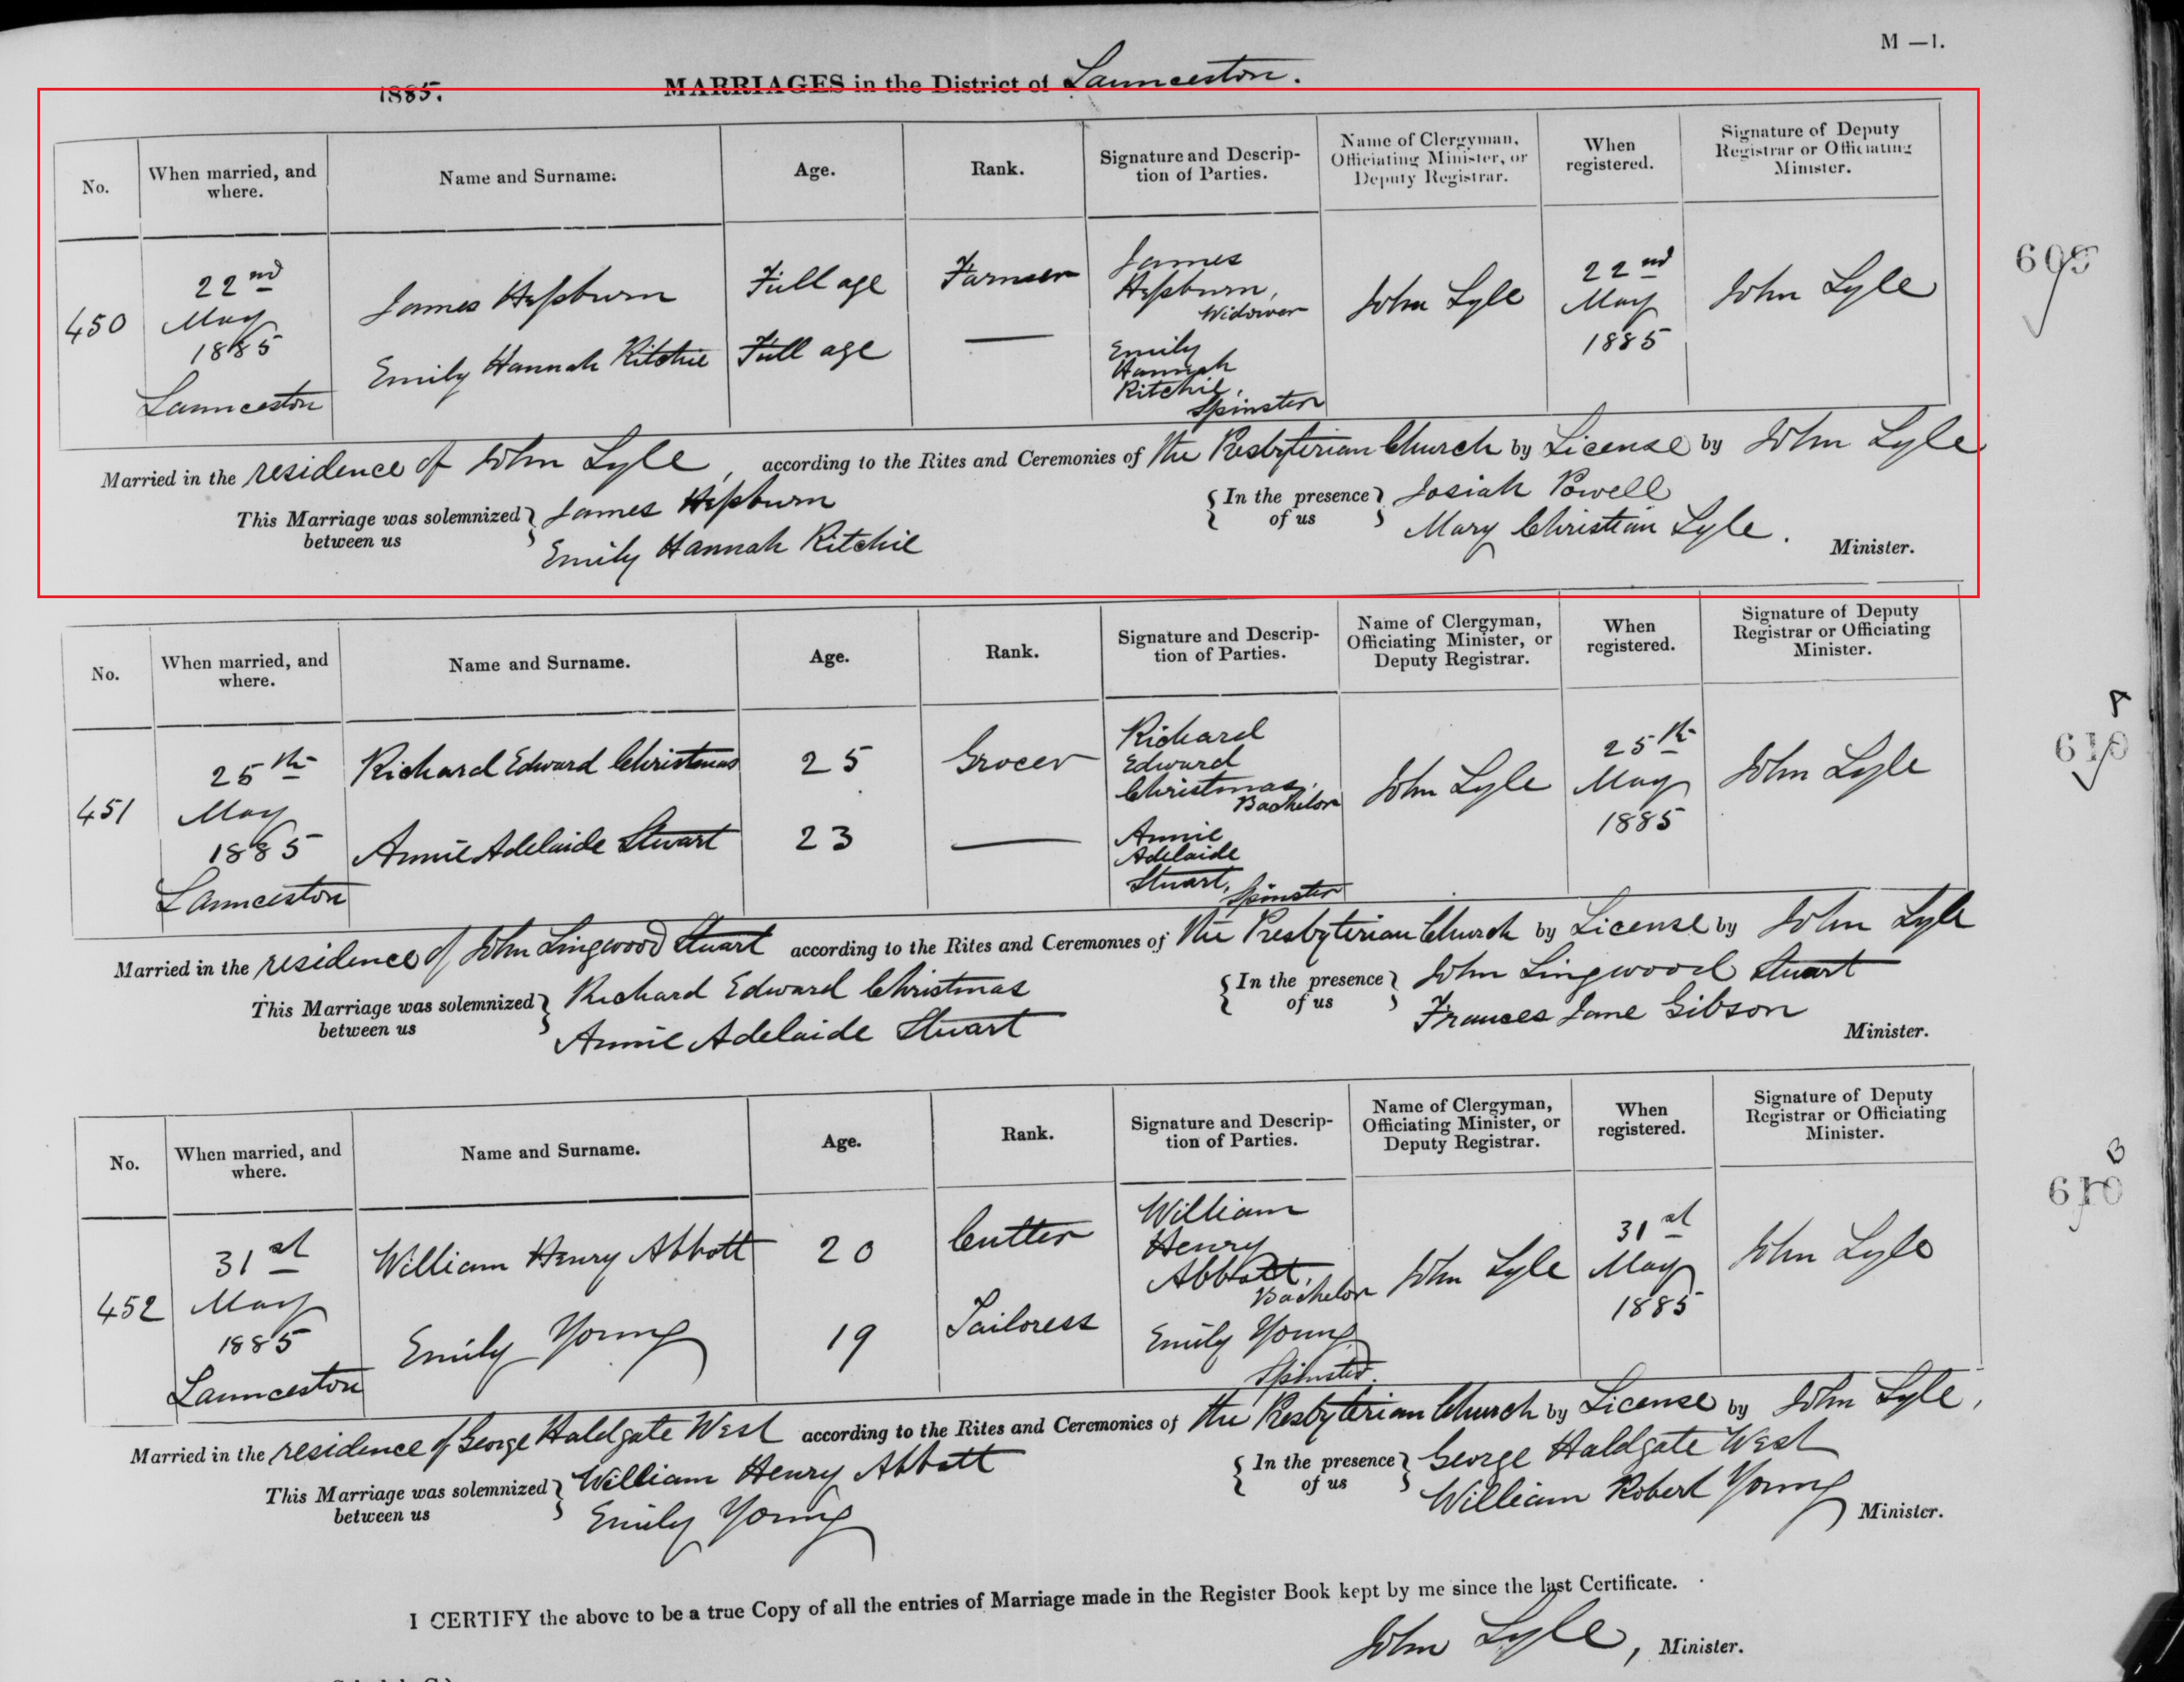 M —1.
1885. MARRIAGES in the District of Launceston.
No. When married, and where. Name and Surname. Age. Rank. Signature and Description of Parties. Name of Clergyman, Officiating Minister, or Deputy Registrar. When registered. Signature of Deputy Registrar or Officiating Minister.
450 22nd May 1885 Launceston James Hepburn Full age Farmer James Hepburn, Widower John Lyle 22nd May 1885 John Lyle 609
Emily Hannah Ritchie Full age — Emily Hannah Ritchie, Spinster
Married in the residence of John Lyle, according to the Rites and Ceremonies of the Presbyterian Church by License by John Lyle
This Marriage was solemnized between us James Hepburn In the presence of us Josiah Powell
Emily Hannah Ritchie Mary Christian Lyle. Minister.
No. When married, and where. Name and Surname. Age. Rank. Signature and Description of Parties. Name of Clergyman, Officiating Minister, or Deputy Registrar. When registered. Signature of Deputy Registrar or Officiating Minister.
451 25th May 1885 Launceston Richard Edward Christmas 25 Grocer Richard Edward Christmas, Bachelor John Lyle 25th May 1885 John Lyle 610 A
Annie Adelaide Stuart 23 — Annie Adelaide Stuart, Spinster
Married in the residence of John Lingwood Stuart according to the Rites and Ceremonies of the Presbyterian Church by License by John Lyle
This Marriage was solemnized between us Richard Edward Christmas In the presence of us John Lingwood Stuart
Annie Adelaide Stuart Frances Jane Gibson Minister.
No. When married, and where. Name and Surname. Age. Rank. Signature and Description of Parties. Name of Clergyman, Officiating Minister, or Deputy Registrar. When registered. Signature of Deputy Registrar or Officiating Minister.
452 31st May 1885 Launceston William Henry Abbott 20 Cutter William Henry Abbott, Bachelor John Lyle 31st May 1885 John Lyle 610 B
Emily Young 19 Tailoress Emily Young Spinster.
Married in the residence of George Haldgate West according to the Rites and Ceremonies of the Presbyterian Church by License by John Lyle,
This Marriage was solemnized between us William Henry Abbott In the presence of us George Haldgate West
Emily Young William Robert Young Minister.
I CERTIFY the above to be a true Copy of all the entries of Marriage made in the Register Book kept by me since the last Certificate.
John Lyle, Minister.